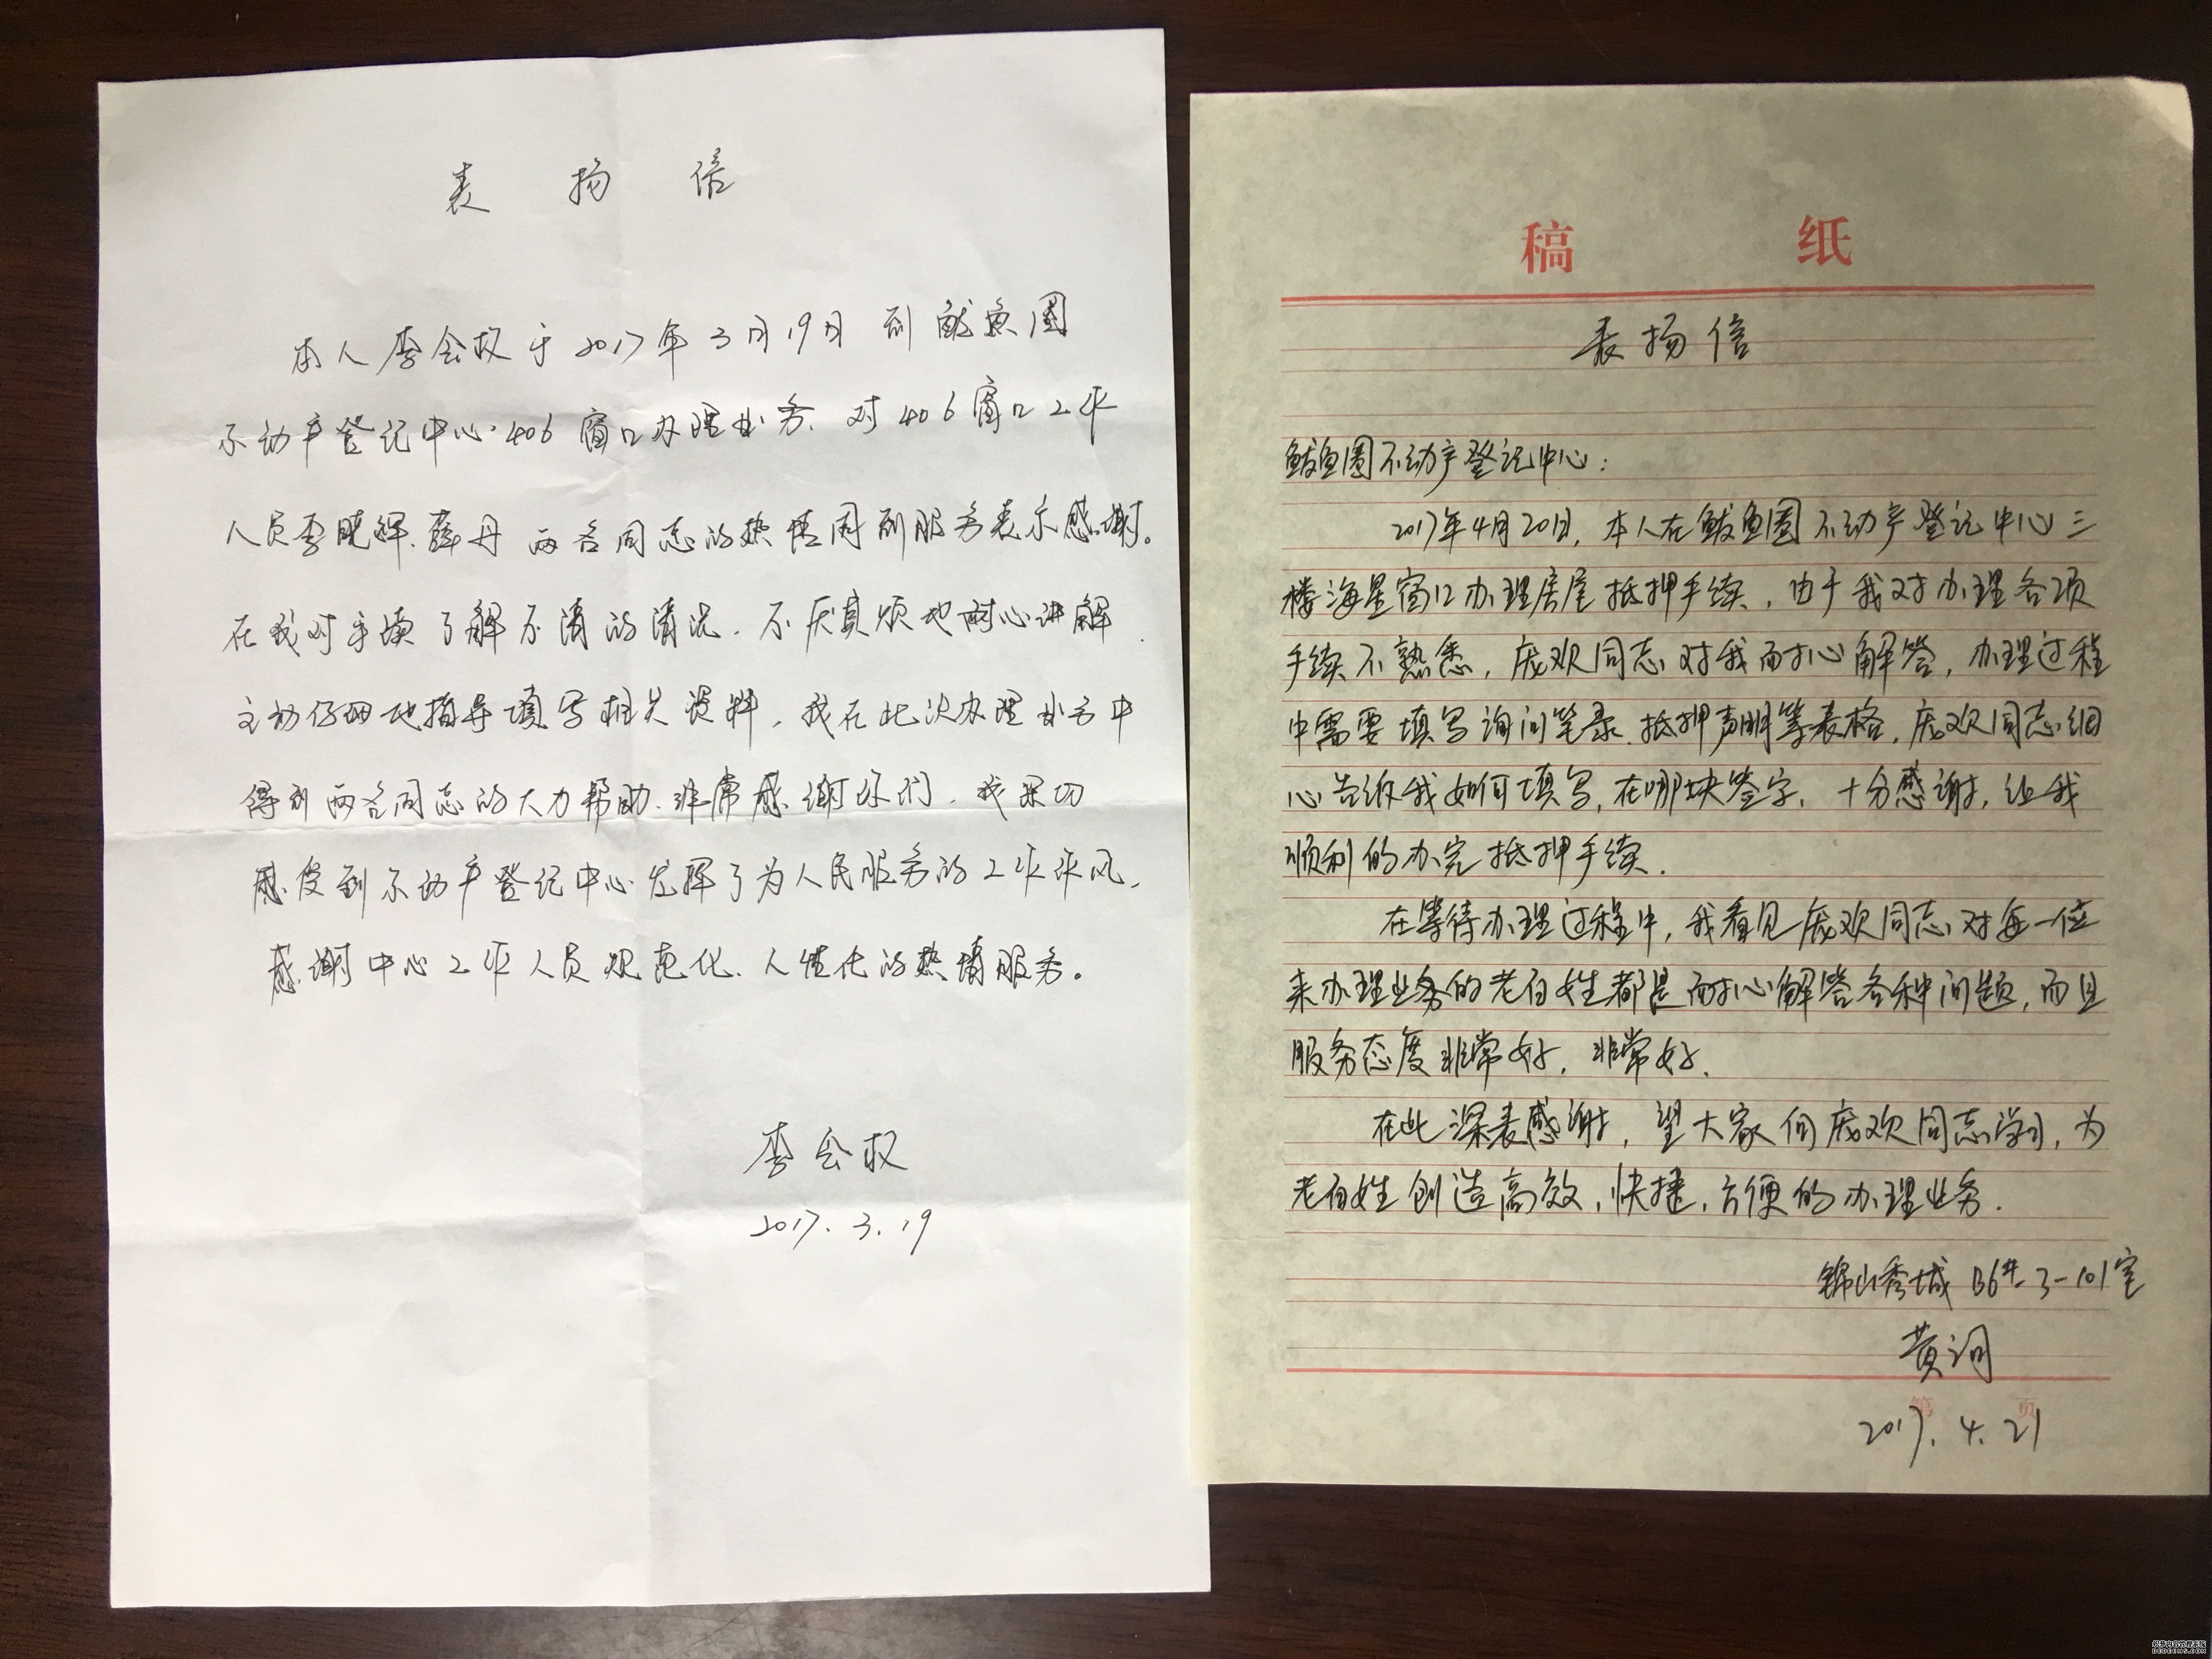 表扬信
本人李会权于2017年3月19日到鲅鱼圈
不动产登记中心406窗口办理业务、对406窗口工作
人员李晓辉、薛丹两名同志的热情周到服务表示感谢。
在我对手续了解不清的情况、不厌其烦地耐心讲解、
主动仔细地指导填写相关资料,我在此次办理业务中
得到两名同志的大力帮助、非常感谢你们、我深切
感受到不动产登记中心发挥了为人民服务的工作作风、
感谢中心工作人员规范化、人性化的热情服务。
李会权
2017.3.19
稿纸
表扬信
鲅鱼圈不动产登记中心:
2017年4月20日,本人在鲅鱼圈不动产登记中心三
楼海星窗口办理房屋抵押手续,由于我对办理各项
手续不熟悉,庞欢同志对我耐心解答,办理过程
中需要填写询问笔录、抵押声明等表格,庞欢同志细
心告诉我如何填写,在哪块签字,十分感谢,让我
顺利的办完抵押手续.
在等待办理过程中,我看见庞欢同志对每一位
来办理业务的老百姓都是耐心解答各种问题,而且
服务态度非常好,非常好.
在此深表感谢,望大家向庞欢同志学习,为
老百姓创造高效,快捷,方便的办理业务.
锦山秀城 B6# 3-101室
黄词
第 页
2017.4.21
织梦内容管理系统
DEDECMS.COM